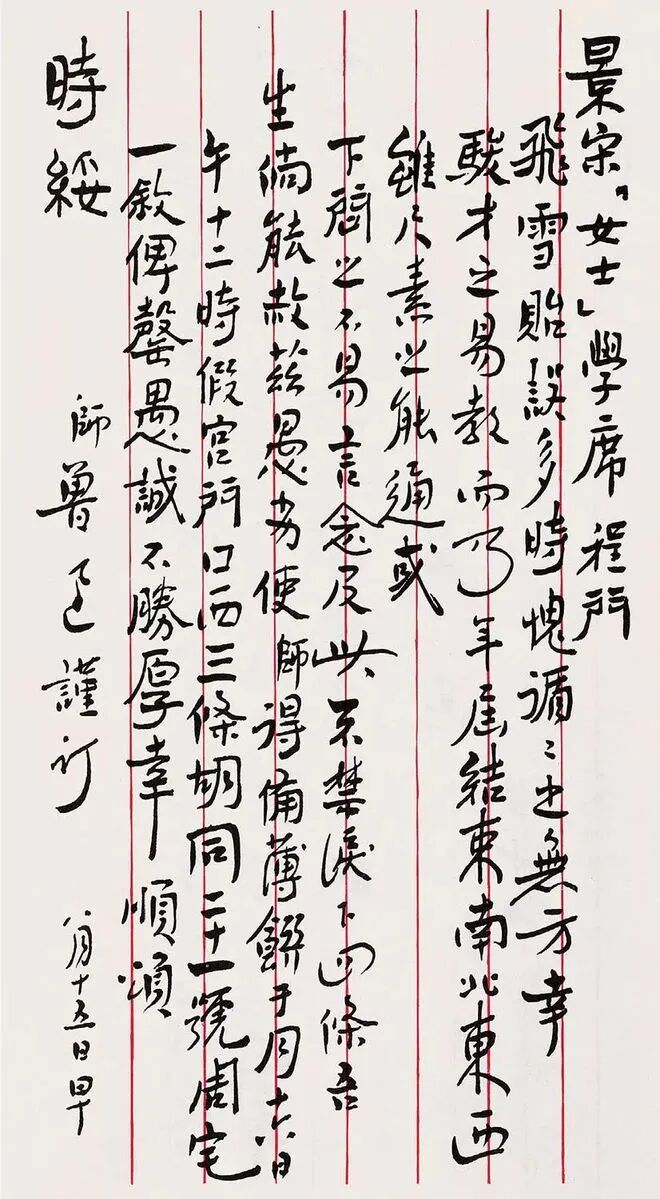 景宋「女士」學席程門
飛雪貽誤多時愧循〻之無方幸
駿才之易教而乃年屆結束南北東西
雖尺素之能通或
下問之不易言念及此不禁淚下四條吾
生倘能赦茲愚劣使師得備薄饌于月十六日
午十二時假宮門口西三條胡同二十一號周宅
一敘俾罄愚誠不勝厚幸順頌
時綏
師魯迅謹訂
八月十五日早